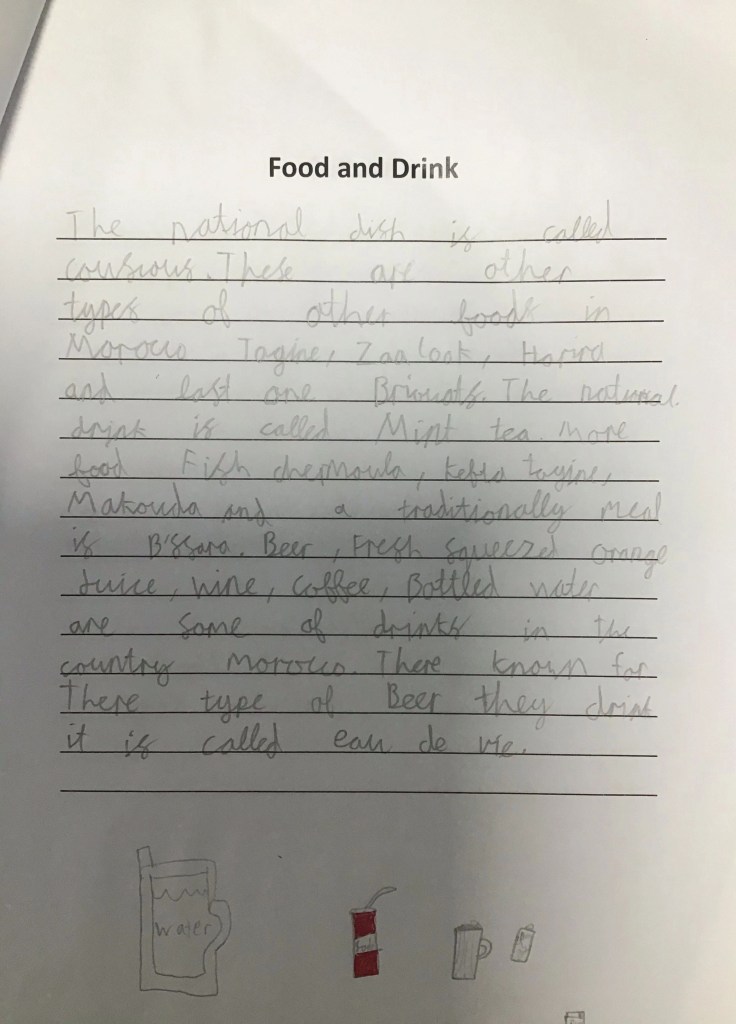 Food and Drink
The national dish is called
couscous. These are other
types of other foods in
Morocco Tagine, Zaalook, Harira
and last one Briouats. The national
drink is called Mint tea. More
food Fish chermoula, kefta tagine,
Makouda and a traditionally meal
is B'ssara. Beer, Fresh squeezed orange
Juice, wine, Coffee, Bottled water
are some of drinks in the
country morocco. There known for
There type of Beer they drink
it is called eau de vie.
water